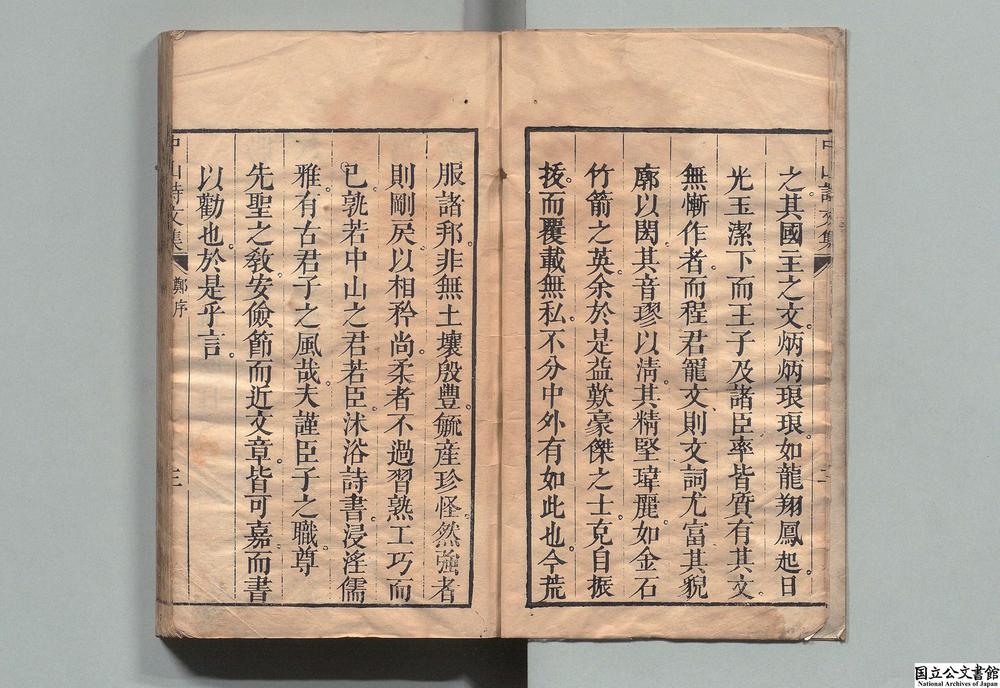 之其國王之文炳炳琅琅如龍翔鳳起日
光玉潔下而王子及諸臣率皆質有其文
無慚作者而程君寵文則文詞尤富其貌
廓以閎其音璆以清其精堅瑋麗如金石
竹箭之英余於是益歎豪傑之士克自振
拔而覆載無私不分中外有如此也今荒
中山詩文集
二
服諸邦非無土壤殷豐毓產珍怪然強者
則剛戾以相矜尚柔者不過習熟工巧而
已孰若中山之君若臣沐浴詩書浸淫儒
雅有古君子之風哉夫謹臣子之職尊
先聖之教安儉節而近文章皆可嘉而書
以勸也於是乎言
中山詩文集
鄭序
三
国立公文書館
National Archives of Japan